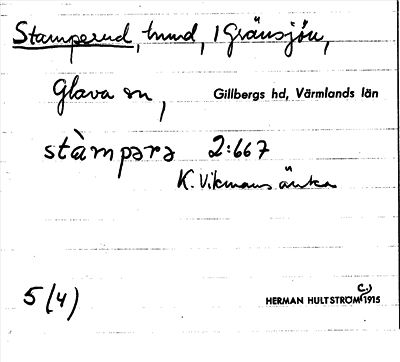 Stamperud, hmd, 1 Gränsjön,
Glava sn, Gillbergs hd, Värmlands län
stàmpərə 2:667
K. Vikmans änka
5 (4) HERMAN HULTSTRÖM (c.) 1915